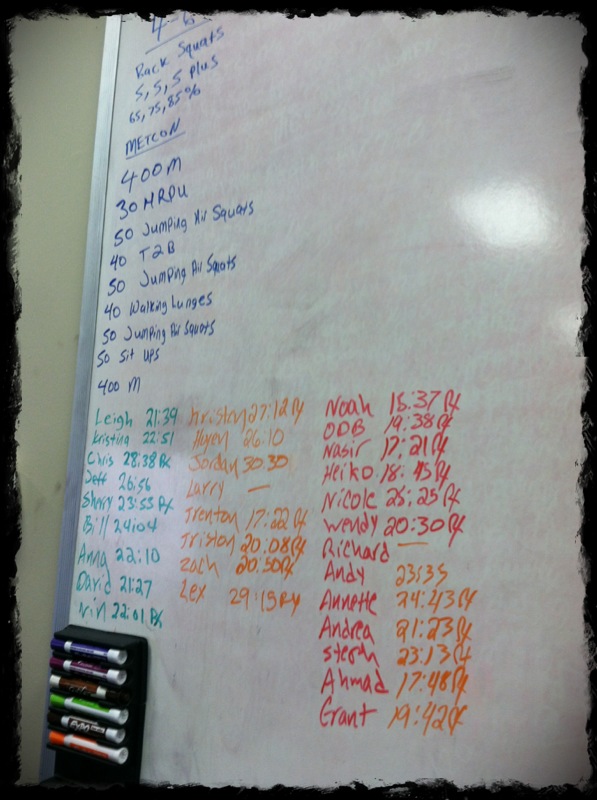 Back Squats
5, 5, 5 plus
65, 75, 85%
METCON
400 M
30 HRPU
50 Jumping Air Squats
40 T2B
50 Jumping Air Squats
40 Walking Lunges
50 Jumping Air Squats
50 Sit Ups
400 M
Leigh 21:39
Kristina 22:51
Chris 28:38 Rx
Jeff 26:56
Sherry 23:53 Rx
Bill 24:04
Anna 22:10
David 21:27
22:01 Rx
Kristen 27:12 Rx
26:10
Jordan 30:30
Larry —
Trenton 17:22 Rx
Triston 20:08 Rx
Zach 20:50 Rx
Lex 29:15 Rx
Noah 18:37 Rx
ODB 19:38 Rx
Nasir 17:21 Rx
Heiko 18:45 Rx
Nicole 25:25 Rx
Wendy 20:30 Rx
Richard —
Andy 23:35
Annette 24:43 Rx
Andrea 21:23 Rx
Steph 23:13 Rx
Ahmad 17:48 Rx
Grant 19:42 Rx